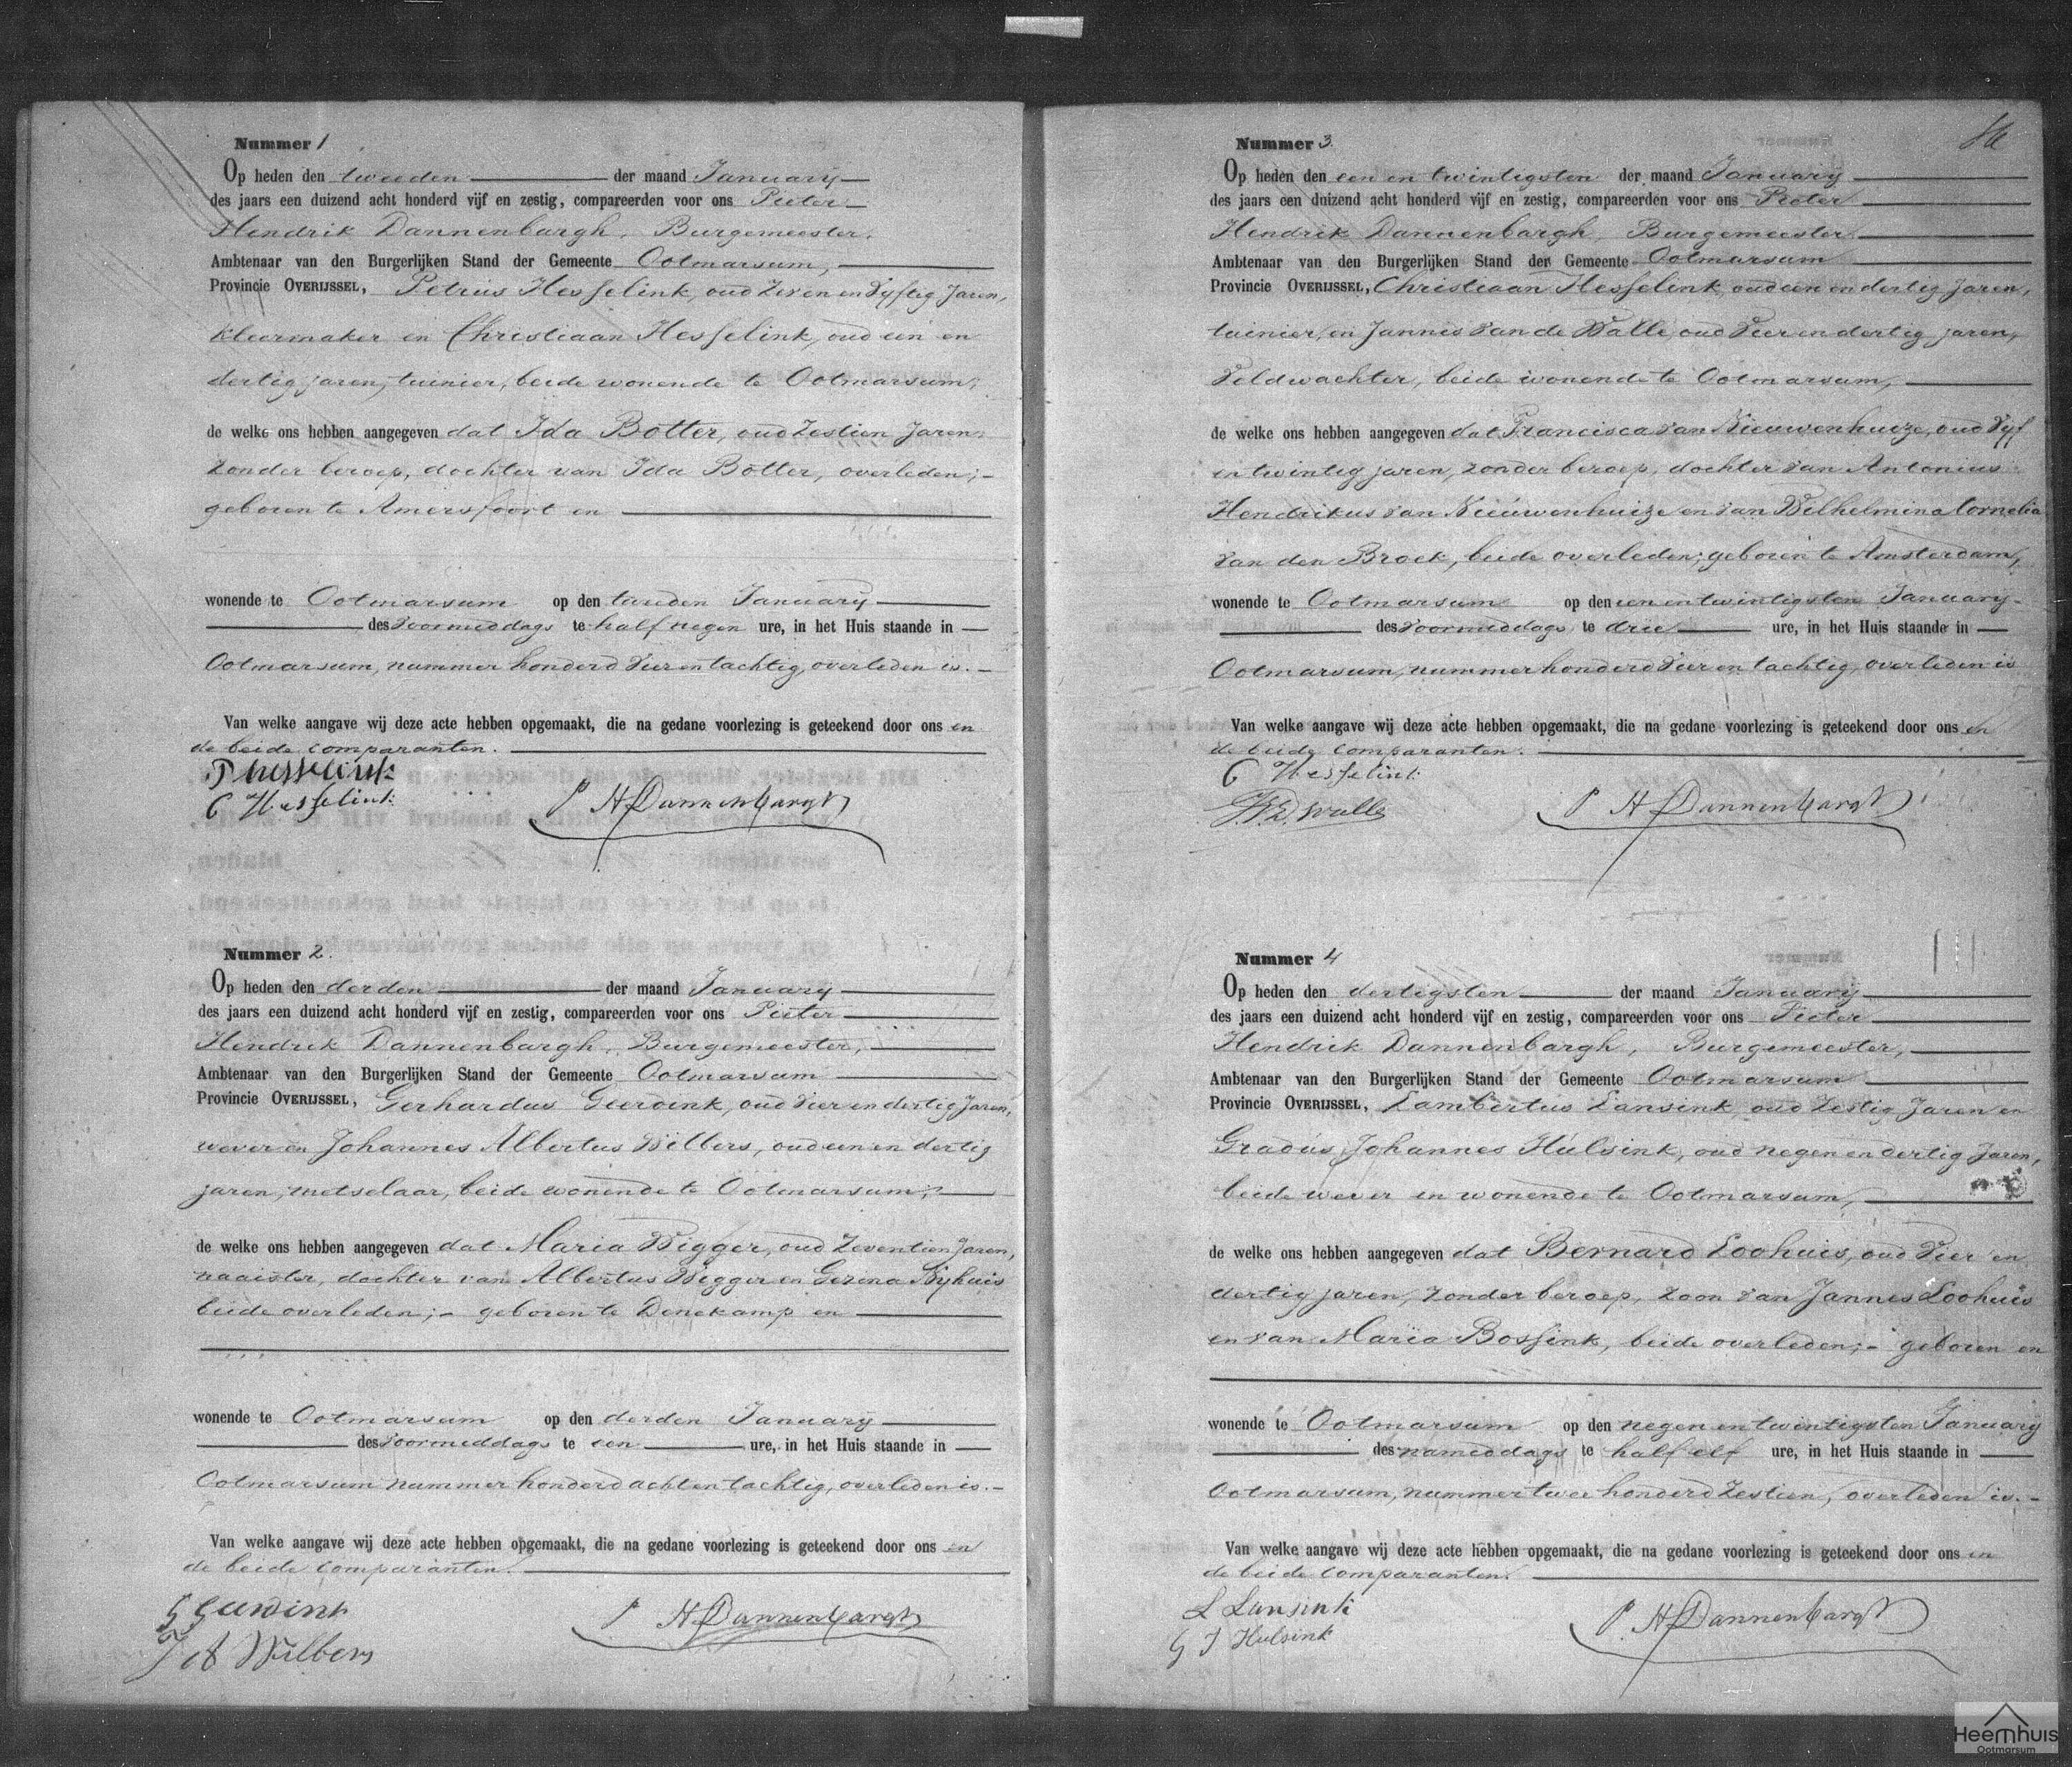 Nummer 1
Op heden den tweeden der maand January
des jaars een duizend acht honderd vijf en zestig, compareerden voor ons Pieter
Hendrik Dannenbargh, Burgemeester,
Ambtenaar van den Burgerlijken Stand der Gemeente Ootmarsum,
Provincie OVERIJSSEL, Petrus Hesselink, oud zeven en vyftig Jaren,
kleermaker en Christiaan Hesselink, oud een en
dertig jaren, tuinier, beide wonende te Ootmarsum;
de welke ons hebben aangegeven dat Ida Botter, oud zestien Jaren,
zonder beroep, dochter van Ida Botter, overleden;-
geboren te Amersfoort en
wonende te Ootmarsum op den tweeden January
des voormiddags te half negen ure, in het Huis staande in
Ootmarsum, nummer honderd vier en tachtig, overleden is.-
Van welke aangave wij deze acte hebben opgemaakt, die na gedane voorlezing is geteekend door ons en
de beide comparanten.
P Hesselink
C Hesselink
P H Dannenbargh
Nummer 2.
Op heden den derden der maand January
des jaars een duizend acht honderd vijf en zestig, compareerden voor ons Pieter
Hendrik Dannenbargh, Burgemeester,
Ambtenaar van den Burgerlijken Stand der Gemeente Ootmarsum
Provincie OVERIJSSEL, Gerhardus Geerdink, oud vier en dertig Jaren,
wever en Johannes Albertus Wilbers, oud een en dertig
jaren, metselaar, beide wonende te Ootmarsum;
de welke ons hebben aangegeven dat Maria Wigger, oud zeventien Jaren,
naaister, dochter van Albertus Wigger en Gezina Nyhuis
beide overleden;- geboren te Denekamp en
wonende te Ootmarsum op den derden January
des voormiddags te een ure, in het Huis staande in
Ootmarsum nummer honderd acht en tachtig, overleden is.-
Van welke aangave wij deze acte hebben opgemaakt, die na gedane voorlezing is geteekend door ons en
de beide comparanten.
G Geerdink
J A Wilbers
P H Dannenbargh
Nummer 3.
Op heden den een en twintigsten der maand January
des jaars een duizend acht honderd vijf en zestig, compareerden voor ons Pieter
Hendrik Dannenbargh, Burgemeester
Ambtenaar van den Burgerlijken Stand der Gemeente Ootmarsum
Provincie OVERIJSSEL, Christiaan Hesselink, oud een en dertig Jaren,
tuinier, en Jannis van de Walle, oud vier en dertig jaren,
veldwachter, beide wonende te Ootmarsum,
de welke ons hebben aangegeven dat Francisca van Nieuwenhuize, oud vyf
en twintig jaren, zonder beroep, dochter van Antonius
Hendrikus van Nieuwenhuize en van Wilhelmina Cornelia
van den Broek, beide overleden; geboren te Amsterdam,
wonende te Ootmarsum op den een en twintigsten January
des voormiddags te drie ure, in het Huis staande in
Ootmarsum, nummer honderd vier en tachtig, overleden is
Van welke aangave wij deze acte hebben opgemaakt, die na gedane voorlezing is geteekend door ons en
de beide comparanten.
C Hesselink
J. V. D. Walle
P H Dannenbargh
Nummer 4
Op heden den dertigsten der maand January
des jaars een duizend acht honderd vijf en zestig, compareerden voor ons Pieter
Hendrik Dannenbargh, Burgemeester,
Ambtenaar van den Burgerlijken Stand der Gemeente Ootmarsum
Provincie OVERIJSSEL, Lambertus Lansink, oud zestig Jaren en
Gradus Johannes Hulsink, oud negen en dertig Jaren,
beide wever en wonende te Ootmarsum,
de welke ons hebben aangegeven dat Bernard Loohuis, oud vier en
dertig jaren, zonder beroep, zoon van Jannes Loohuis
en van Maria Bossink, beide overleden;- geboren en
wonende te Ootmarsum op den negen en twintigsten January
des namiddags te half elf ure, in het Huis staande in
Ootmarsum, nummer twee honderd zestien, overleden is.-
Van welke aangave wij deze acte hebben opgemaakt, die na gedane voorlezing is geteekend door ons en
de beide comparanten.
L Lansink
G J Hulsink
P. H Dannenbargh
Heemhuis
Ootmarsum